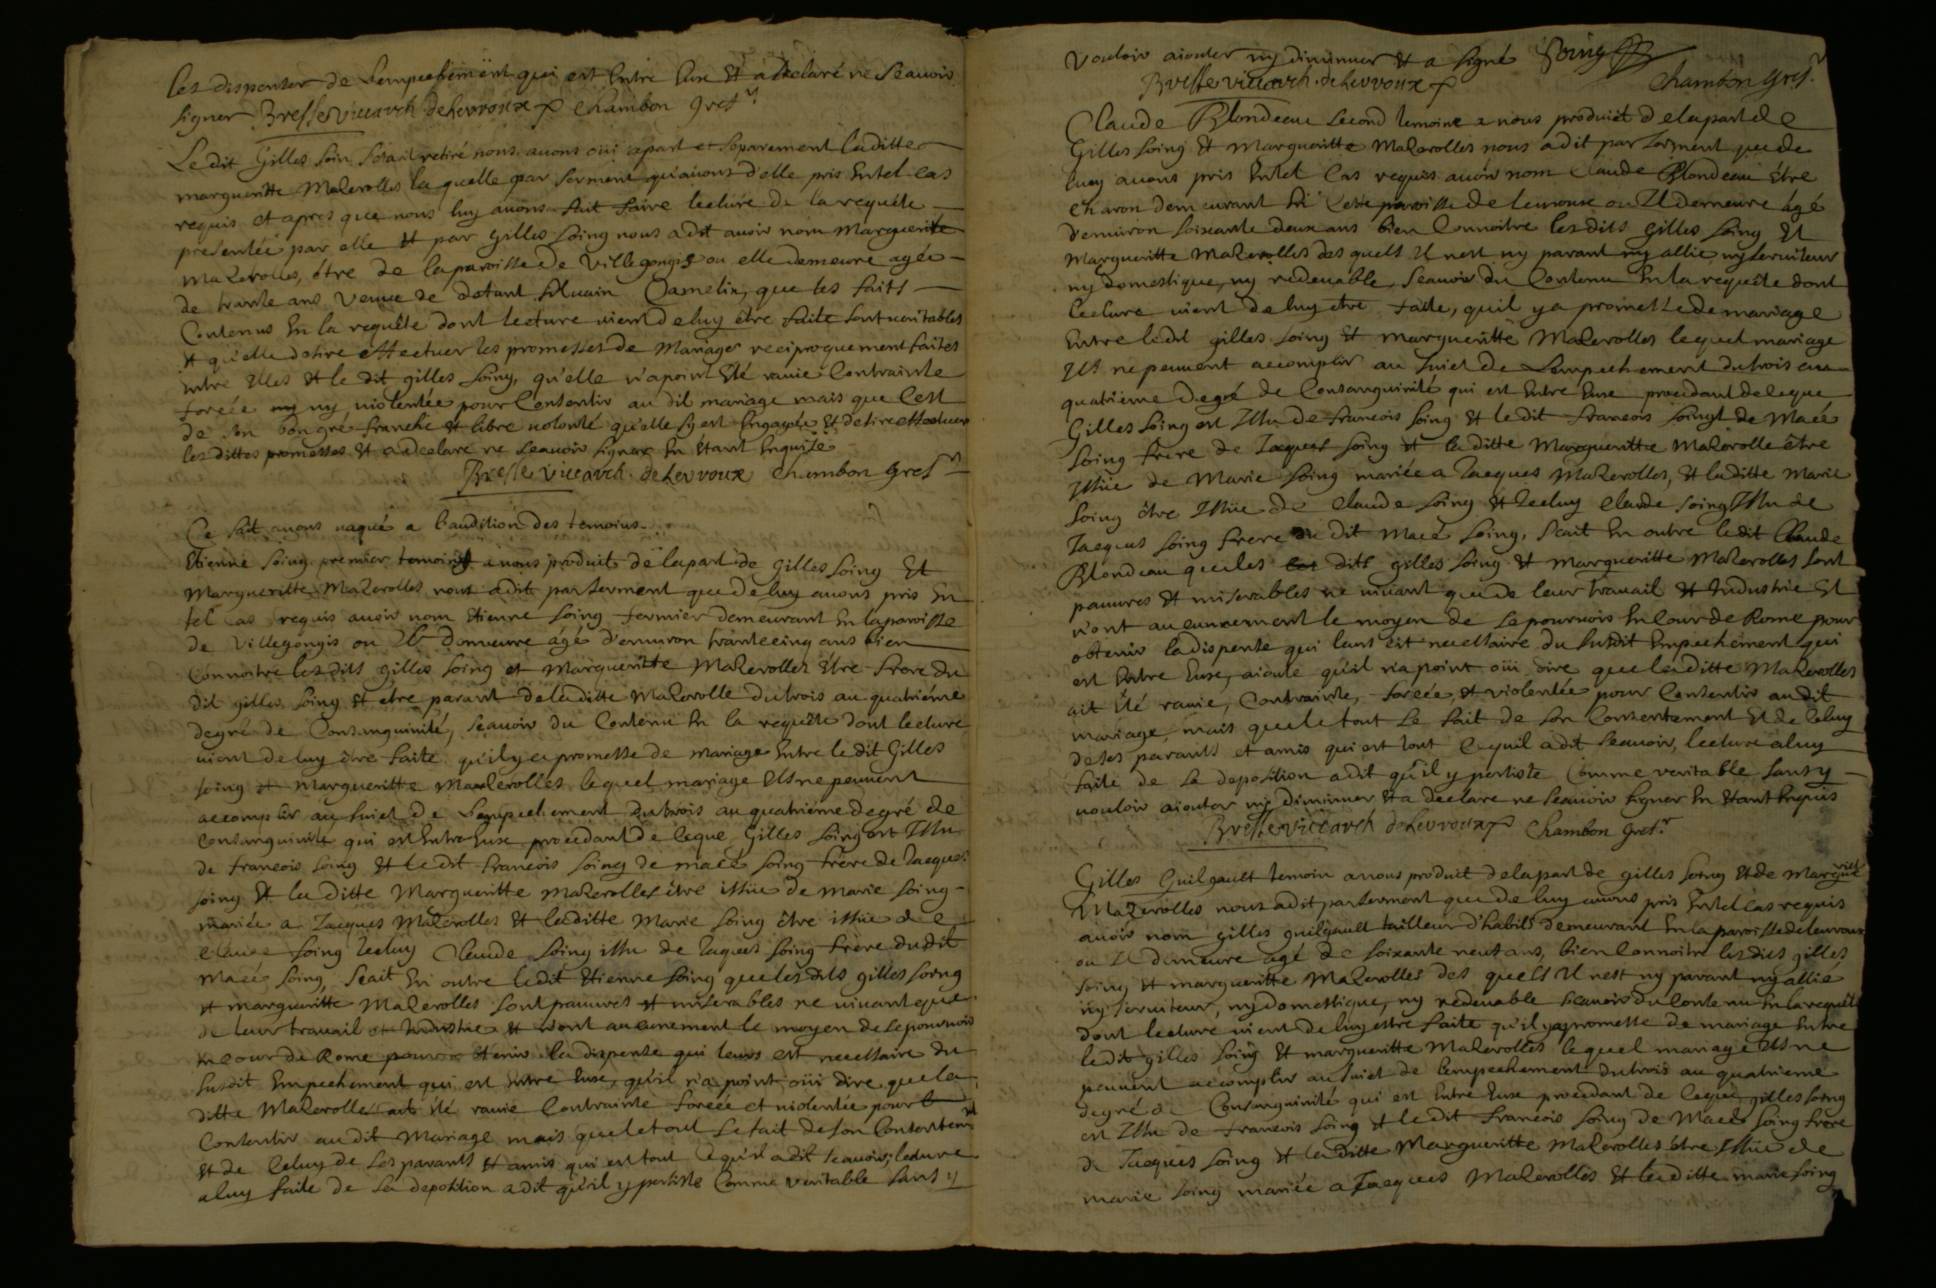 les dispenser de Lempechement qui est Entre Eux Et a declaré ne Scavoir
signer Bresse vic arch de Levroux Chambon Gref.r
Le dit Gilles Soing S'étant retiré nous avons oüi apart et Séparement laditte
margueritte Mazerolles laquelle par serment qu'avons d'elle pris Entel cas
requis et apres que nous luy avons fait faire lecture de la requête
presentée par elle Et par gilles Soing nous a dit avoir nom Marguerite
Mazerolles, être de la paroisse de Villegongis ou elle demeure agée
de trante ans veuve de defunt Silvain Camelin, que les faits
Contenus En la requête dont lecture vient de luy etre faite sont veritables
Et qu'elle desire effectuer les promesses de Mariage reciproquement faites
entre Elles Et le dit gilles Soing, qu'elle n'a point Eté ravie Contrainte
forcée ny violentée pour Consentir au dit mariage mais que C'est
de son bon gré franche Et libre volonté qu'elle s'y est Engagée Et desire effectuer
les dittes promesses Et a declaré ne Scavoir signer En Etant Enquise
Bresse vic arch. de Levroux Chambon Gref.r
Ce fait avons vaqué a l'audition des temoins.
Etienne Soing premier temoin a nous produit de la part de gilles Soing Et
Margueritte Mazerolles nous a dit par serment que de luy avons pris En
tel Cas requis avoir nom Etienne Soing fermier demeurant En la paroisse
de Villegongis ou Il demeure âgé d'environ trante cinq ans bien
Connoitre les dits gilles Soing et Margueritte Mazerolles Etre frere du
dit gilles Soing Et etre parant de laditte Mazerolle du trois au quatriéme
degré de Consanguinité, scavoir du Contenu En la requête dont lecture
vient de luy être faite qu'il y a promesse de mariage Entre le dit Gilles
Soing et Margueritte Mazerolles lequel mariage Ils ne peuvent
accomplir au Sujet de Lempechement du trois au quatriéme degré de
Consanguinité qui est Entre Eux procedant de Ceque Gilles Soing est Issu
de francois Soing Et le dit francois Soing de macé Soing frére de Jacques
Soing Et la ditte Margueritte Mazerolles être issüe de Marie Soing
mariée a Jacques Mazerolles Et laditte Marie Soing être issüe de
Claude Soing Iceluy Claude Soing issu de Jacques Soing frére du dit
Macé Soing, Scait En outre le dit Etienne Soing que les dits gilles Soing
et margueritte Mazerolles sont pauvres et miserables ne vivant que
de leur travail et Industrie Et n'ont aucunement le moyen de se pourvoir
En cour de Rome pour obtenir la dispense qui leurs est necessaire du
susdit Empechement qui est Entre Eux, qu'il n'a point oüi dire que la
ditte Mazerolle ait été ravie Contrainte forcée et violentée pour
Consentir audit Mariage mais que le tout se fait de son Consentem.nt
Et de Celuy de ses parants Et amis qui est tout Ce qu'il a dit scavoir, lecture
a luy faite de sa deposition a dit qu'il y persiste Comme veritable sans y
Vouloir aiouter ny diminuer Et a signé Soing
Bresse vic arch. de Levroux Chambon Gref.r
Claude Blondeau second temoin a nous produit de la part de
Gilles Soing Et Margueritte Mazerolles nous a dit par serment que de
luy avons pris Entel Cas requis avoir nom Claude Blondeau Etre
charon demeurant En Cette paroisse de Levroux ou Il demeure âgé
d'environ soixante deux ans bien Connoitre les dits Gilles Soing Et
Margueritte Mazerolles des quels Il n'est ny parant ny allié ny serviteur
ny domestique, ny redevable, scavoir du Contenu En la requête dont
lecture vient de luy être faite, qu'il y a promesse de mariage
Entre ledit gilles Soing Et margueritte Mazerolles lequel mariage
Ils ne peuvent accomplir au sujet de Lempechement du trois au
quatriéme degré de Consanguinité qui est Entre Eux procedant de ceque
Gilles Soing est Issu de francois Soing Et le dit francois Soing de Macé
Soing frére de Jacques Soing et laditte Margueritte Mazerolle être
Issüe de Marie Soing mariée a Jacques Mazerolles, Et laditte Marie
Soing être Issüe de Claude Soing Et Iceluy Claude Soing Issu de
Jacques Soing frere du dit Macé Soing, Scait En outre ledit Claude
Blondeau que les dits gilles Soing Et Margueritte Mazerolles sont
pauvres Et miserables ne vivant que de leur travail Et Industrie Et
n'ont aucunement le moyen de se pourvoir En Cour de Rome pour
obtenir la dispense qui leur est necessaire du susdit Empechement qui
est Entre Eux, aioute qu'il n'a point oüi dire que laditte Mazerolles
ait Eté ravie, Contrainte, forcée, Et violentée pour Consentir au dit
mariage, mais que le tout se fait de son Consentement Et de Celuy
de ses parants et amis qui est tout Ce qu'il a dit scavoir, lecture a luy
faite de sa deposition a dit qu'il y persiste Comme veritable sans y
vouloir aiouter ny diminuer Et a declare ne scavoir signer En Etant Enquis
Bresse vic arch de Levroux Chambon Gref.r
Gilles Guilgault temoin a nous produit de la part de gilles Soing Et de Margueritte
Mazerolles nous a dit par serment que de luy avons pris Entel Cas requis
avoir nom gilles guilgault tailleur d'habits demeurant En la paroisse de Levroux
ou Il demeure agé de soixante neuf ans, bien Connoitre les dits gilles
Soing Et margueritte Mazerolles des quels Il n'est ny parant ny allié
ny serviteur, ny domestique, ny redevable scavoir du Contenu En la requête
dont lecture vient de luy estre faite qu'il y a promesse de mariage Entre
ledit gilles Soing Et margueritte Mazerolles lequel mariage Ils ne
peuvent accomplir au sujet de l'empechement du trois au quatrieme
degré de Consanguinité qui est Entre Eux procedant de Ceque gilles Soing
est Issu de francois Soing Et le dit francois Soing de Macé Soing frere
de Jacques Soing Et laditte Margueritte Mazerolles être Issüe de
marie Soing mariée a Jacques Mazerolles Et laditte marie Soing